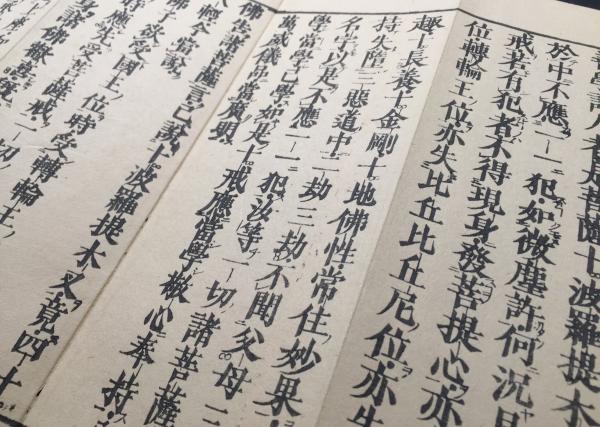 善學諸人者是菩薩十波羅提木
於中不應一一犯如微塵許何況具
戒若有犯者不得現身發菩提心亦
位轉輪王位亦失比丘比丘尼位亦失
趣十長養十金剛十地佛性常住妙果
持失墮三惡道中二劫三劫不聞父母三
名字以是不應一一犯汝等一切諸菩薩
學當學已學如是十戒應當學敬心奉持
萬威儀品當廣明
佛告諸菩薩言已說十波羅提木叉竟四十
八輕今當說
佛子欲受國王位時受轉輪王
受菩薩戒一切
身諸佛歡喜既